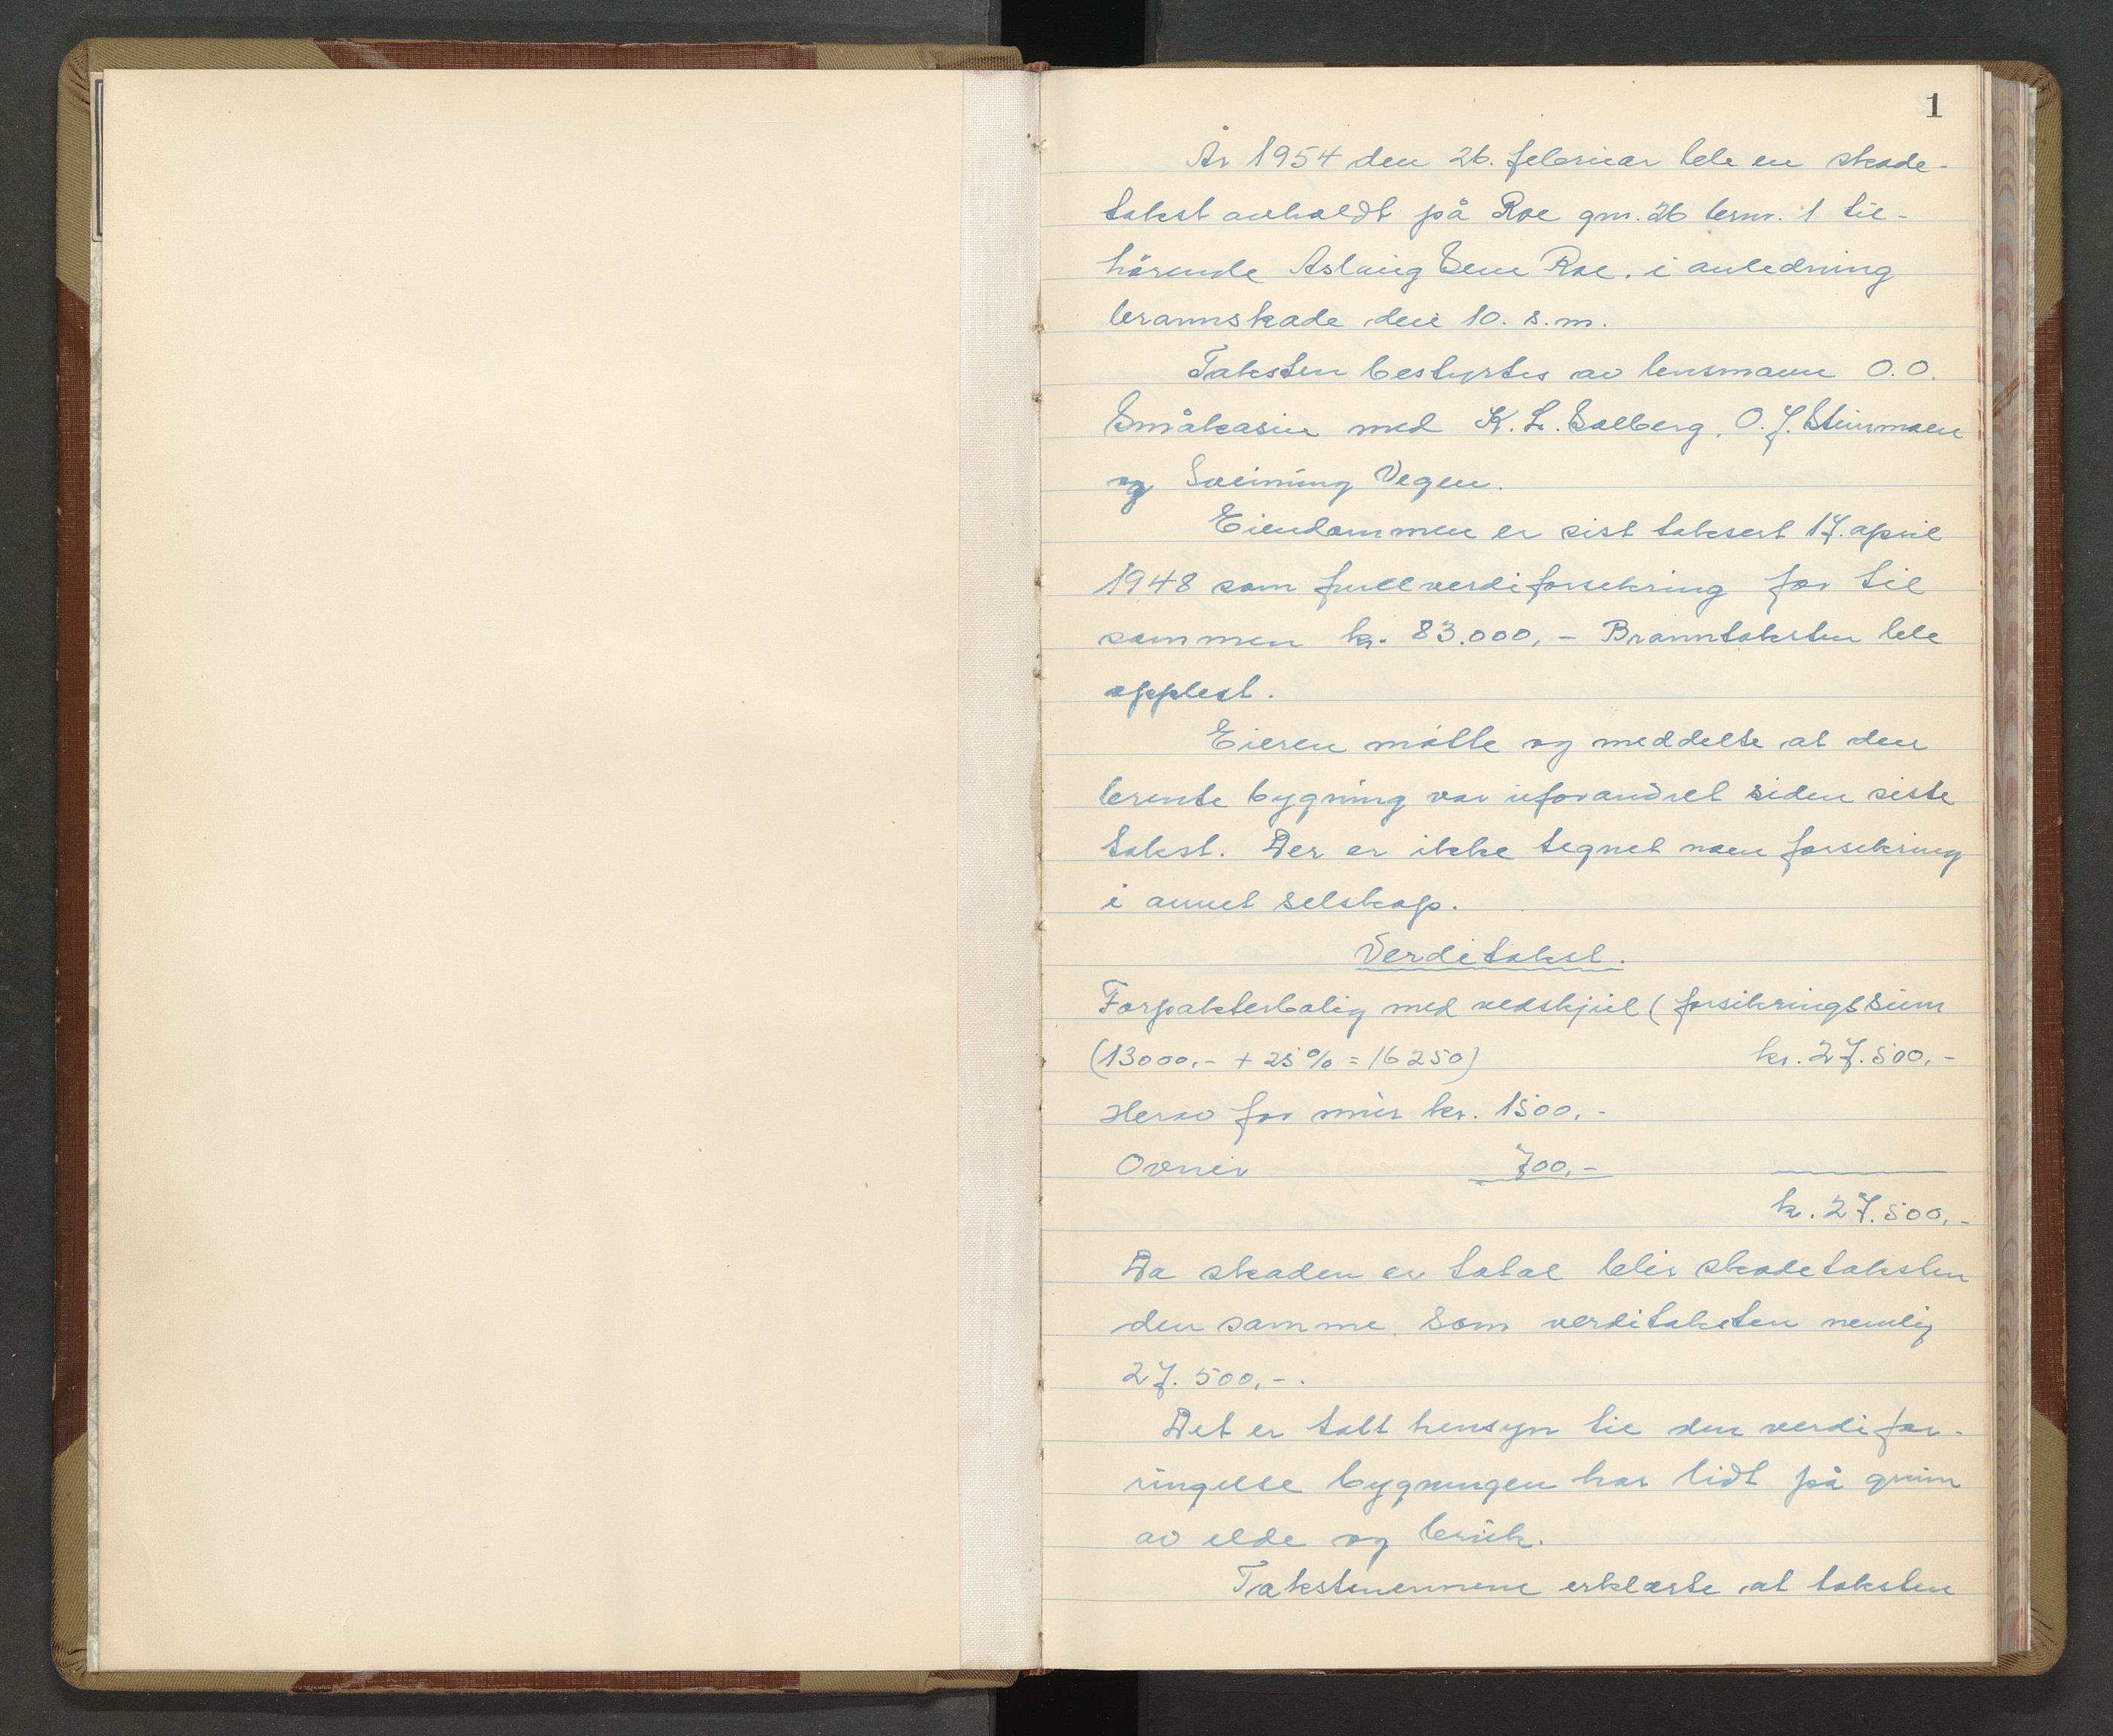 1
År 1954 den 26. februar ble en skade-
takst avholdt på Roe gnr. 26 brnr. 1 til-
hørende Aslaug Sem Roe. i anledning
brannskade den 10. s.m.
Taksten bestyrtes av lensmann O.O.
Småkasin med K. L. Solberg, O. J. Steinmoen
og Sveinung Vegen.
Eiendommen er sist taksert 17. april
1948 som fullverdiforsekring for til
sammen kr. 83.000,- Branntaksten ble
opplest.
Eieren møtte og meddelte at den
brente bygning var uforandret siden siste
takst. Der er ikke tegnet noen forsekring
i annet selskap.
Verditakst.
Forpakterbolig med vedskjul (forsikringssum
(13000,- + 25% = 16250) kr. 27.500,-
Herav for mur kr. 1500,-
Ovner 700,-
kr. 27.500,-
Da skaden er total blir skadetaksten
den samme som verditaksten nemlig
27.500,-.
Det er tatt hensyn til den verdifor-
ringelse bygningen har lidt på grunn
av elde og bruk.
Takstmennene erklærte at taksten